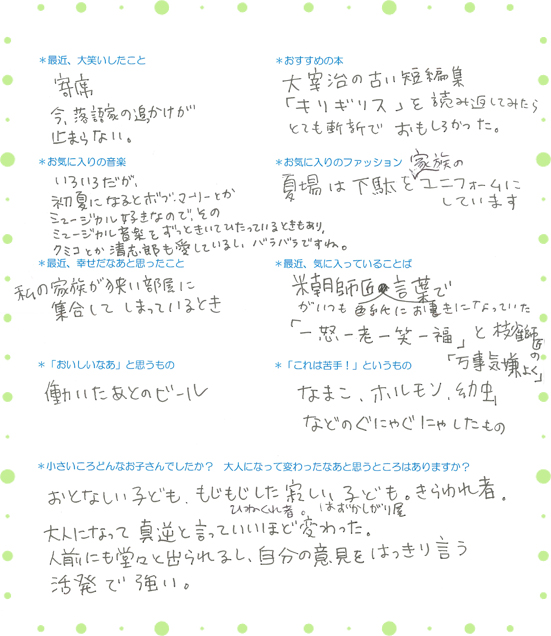 ＊最近、大笑いしたこと
寄席
今、落語家の追かけが
止まらない。
＊おすすめの本
太宰治の古い短編集
「キリギリス」を読み返してみたら
とても斬新で おもしろかった。
＊お気に入りの音楽
いろいろだが、
初夏になるとボブ・マーリーとか
ミュージカル好きなので、その
ミュージカル音楽をずっときいてひたっているときもあり、
クミコとか清志郎も愛しているし、バラバラですね。
＊お気に入りのファッション
家族の
夏場は下駄をユニフォームに
しています
＊最近、幸せだなあと思ったこと
私の家族が狭い部屋に
集合して しまっているとき
＊最近、気に入っていることば
米朝師匠の言葉で
がいつも色紙にお書きになっていた
「一怒一老一笑一福」と枝雀師匠の
「万事気嫌よく」
＊「おいしいなあ」と思うもの
働いたあとのビール
＊「これは苦手！」というもの
なまこ、ホルモン、幼虫
などのぐにゃぐにゃしたもの
＊小さいころどんなお子さんでしたか？　大人になって変わったなあと思うところはありますか？
おとなしい子ども、もじもじした寂しい子ども。きらわれ者。
ひねくれ者。はずかしがり屋
大人になって真逆と言っていいほど変わった。
人前にも堂々と出られるし、自分の意見をはっきり言う
活発で強い。